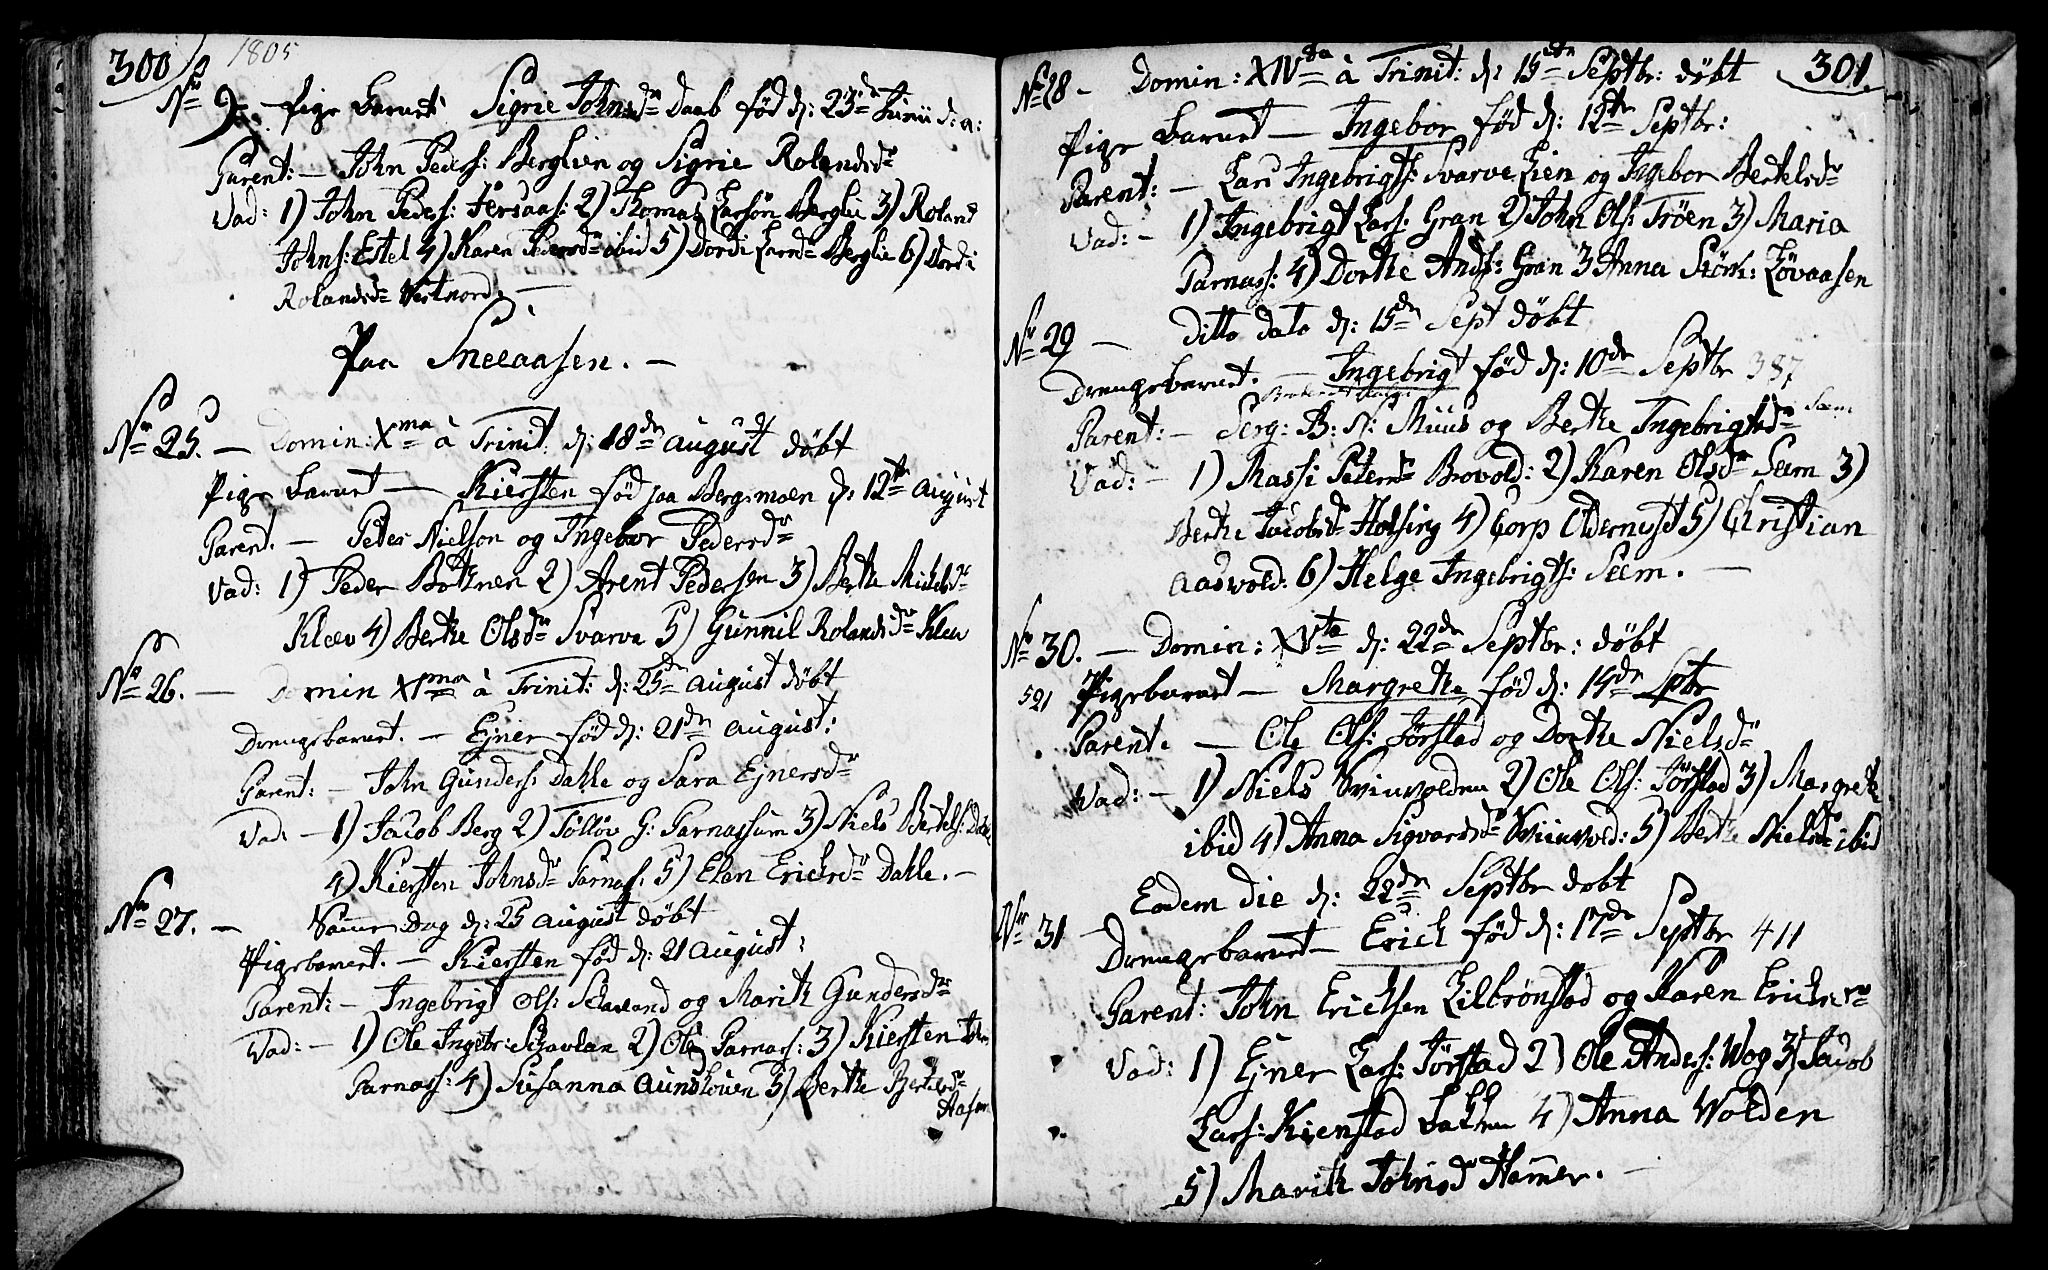 300
1805
No 9. - Pige Barnet Sigrie Johnsdr Daab fød d: 23de Junii d: a:
Parent: - John Peders: Berglien og Sigrie Rolandsdr
Vad: 1) John Peders: Jersaas: 2) Thomas Larsøn Berglie 3) Roland
Johns: Estel 4) Karen Pedersdr ibid 5) Dordi Larsdr Berglie 6) Dordi
Rolandsdr Vestnord. -
Paa Sneeaasen. -
No 25. - Domin: Xma à Trinit. d: 18de August döbt
Pige barnet - Kiersten fød paa Bergsmoen d: 12te August
Parent. - Peter Nielson og Ingebor Pedersdr
Vad: 1) Peder Bothnen 2) Arent Pedersen 3) Berthe Mikelsdr
Kleev 4) Berthe Olsdr Svarva 5) Gunnil Rolandsdr Klev
No 26. - Domin XIma à Trinit: d: 25de August döbt
Drengebarnet. - Ejner fød d: 21de August:
Parent: - John Gunders: Dahle og Sara Ejnersdr
Vad: - 1) Jacob Berg 2) Tölløv G: Parnassum 3) Niels Bertels: Dahle
4) Kiersten Johnsdr Parnas: 5) Elen Ericksdr Dahle. -
No 27. - Samme Dag d: 25 August döbt
Pigebarnet. - Kiersten fød d: 21 August:
Parent: - Ingebrigt Ols: Schavland og Marith Gundersdr
Vad: - 1) Ole Ingebr: Schavlan 2) Ole Parnass: 3) Kiersten Johns
Parnass: 4) Susanna Aunslouen 5) Berthe Bertelsdr
Aasen
301.
No 28 - Domin: XIVta à Trinit: d: 15de Septbr: döbt
Pige barnet - Ingebor fød d: 12te Septbr:
Parent: - Lars Ingebrigts: Svarve Lien og Ingebor Bertelsdr
Vad: - 1) Ingebrigt Lars: Gran 2) John Ols: Tröen 3) Maria
Parnass: 4) Dorthe Ands: Gran 3 Anna Störk: Lövaasen
No 29 - Ditto dato d: 15de Sept döbt
Drengebarnet. - Ingebrigt fød d: 10de Septbr 387
Parent: - Serg: B: N: Muus og Berthe Ingebrigtsdr Seem
Vad: - 1) Massi Petersdr Brovold: 2) Karen Olsdr Seem 3)
Berthe Jacobsdr Holsing 4) Corp Odernust 5) Christian
Aasvold: 6) Helge Ingebrigts: Seem. -
No 30. - Domin: XVta d: 22de Septbr: döbt
521 Pigebarnet - Margrethe fød d: 15de Sptbr
Parent. - Ole Ols: Jörstad og Dorthe Nielsdr
Vad: - 1) Niels Sviinvolden 2) Ole Ols: Jörstad 3) Margrete
ibid 4) Anna Sigvardsdr Sviinvold: 5) Berthe Nielsdr ibid
Eodem die d: 22de Septbr dobt
No 31
Drengebarnet - Erich fød d: 17de Septbr 411
Parent: John Ericksen Lilbrönstad og Karen Ericksdr
Vad: 1) Ejner Lars: Jörstad 2) Ole Anders: Wog 3) Jacob
Lars: Kienstad Bakken 4) Anna Wolden
5) Marith Johnsd Hammer. -